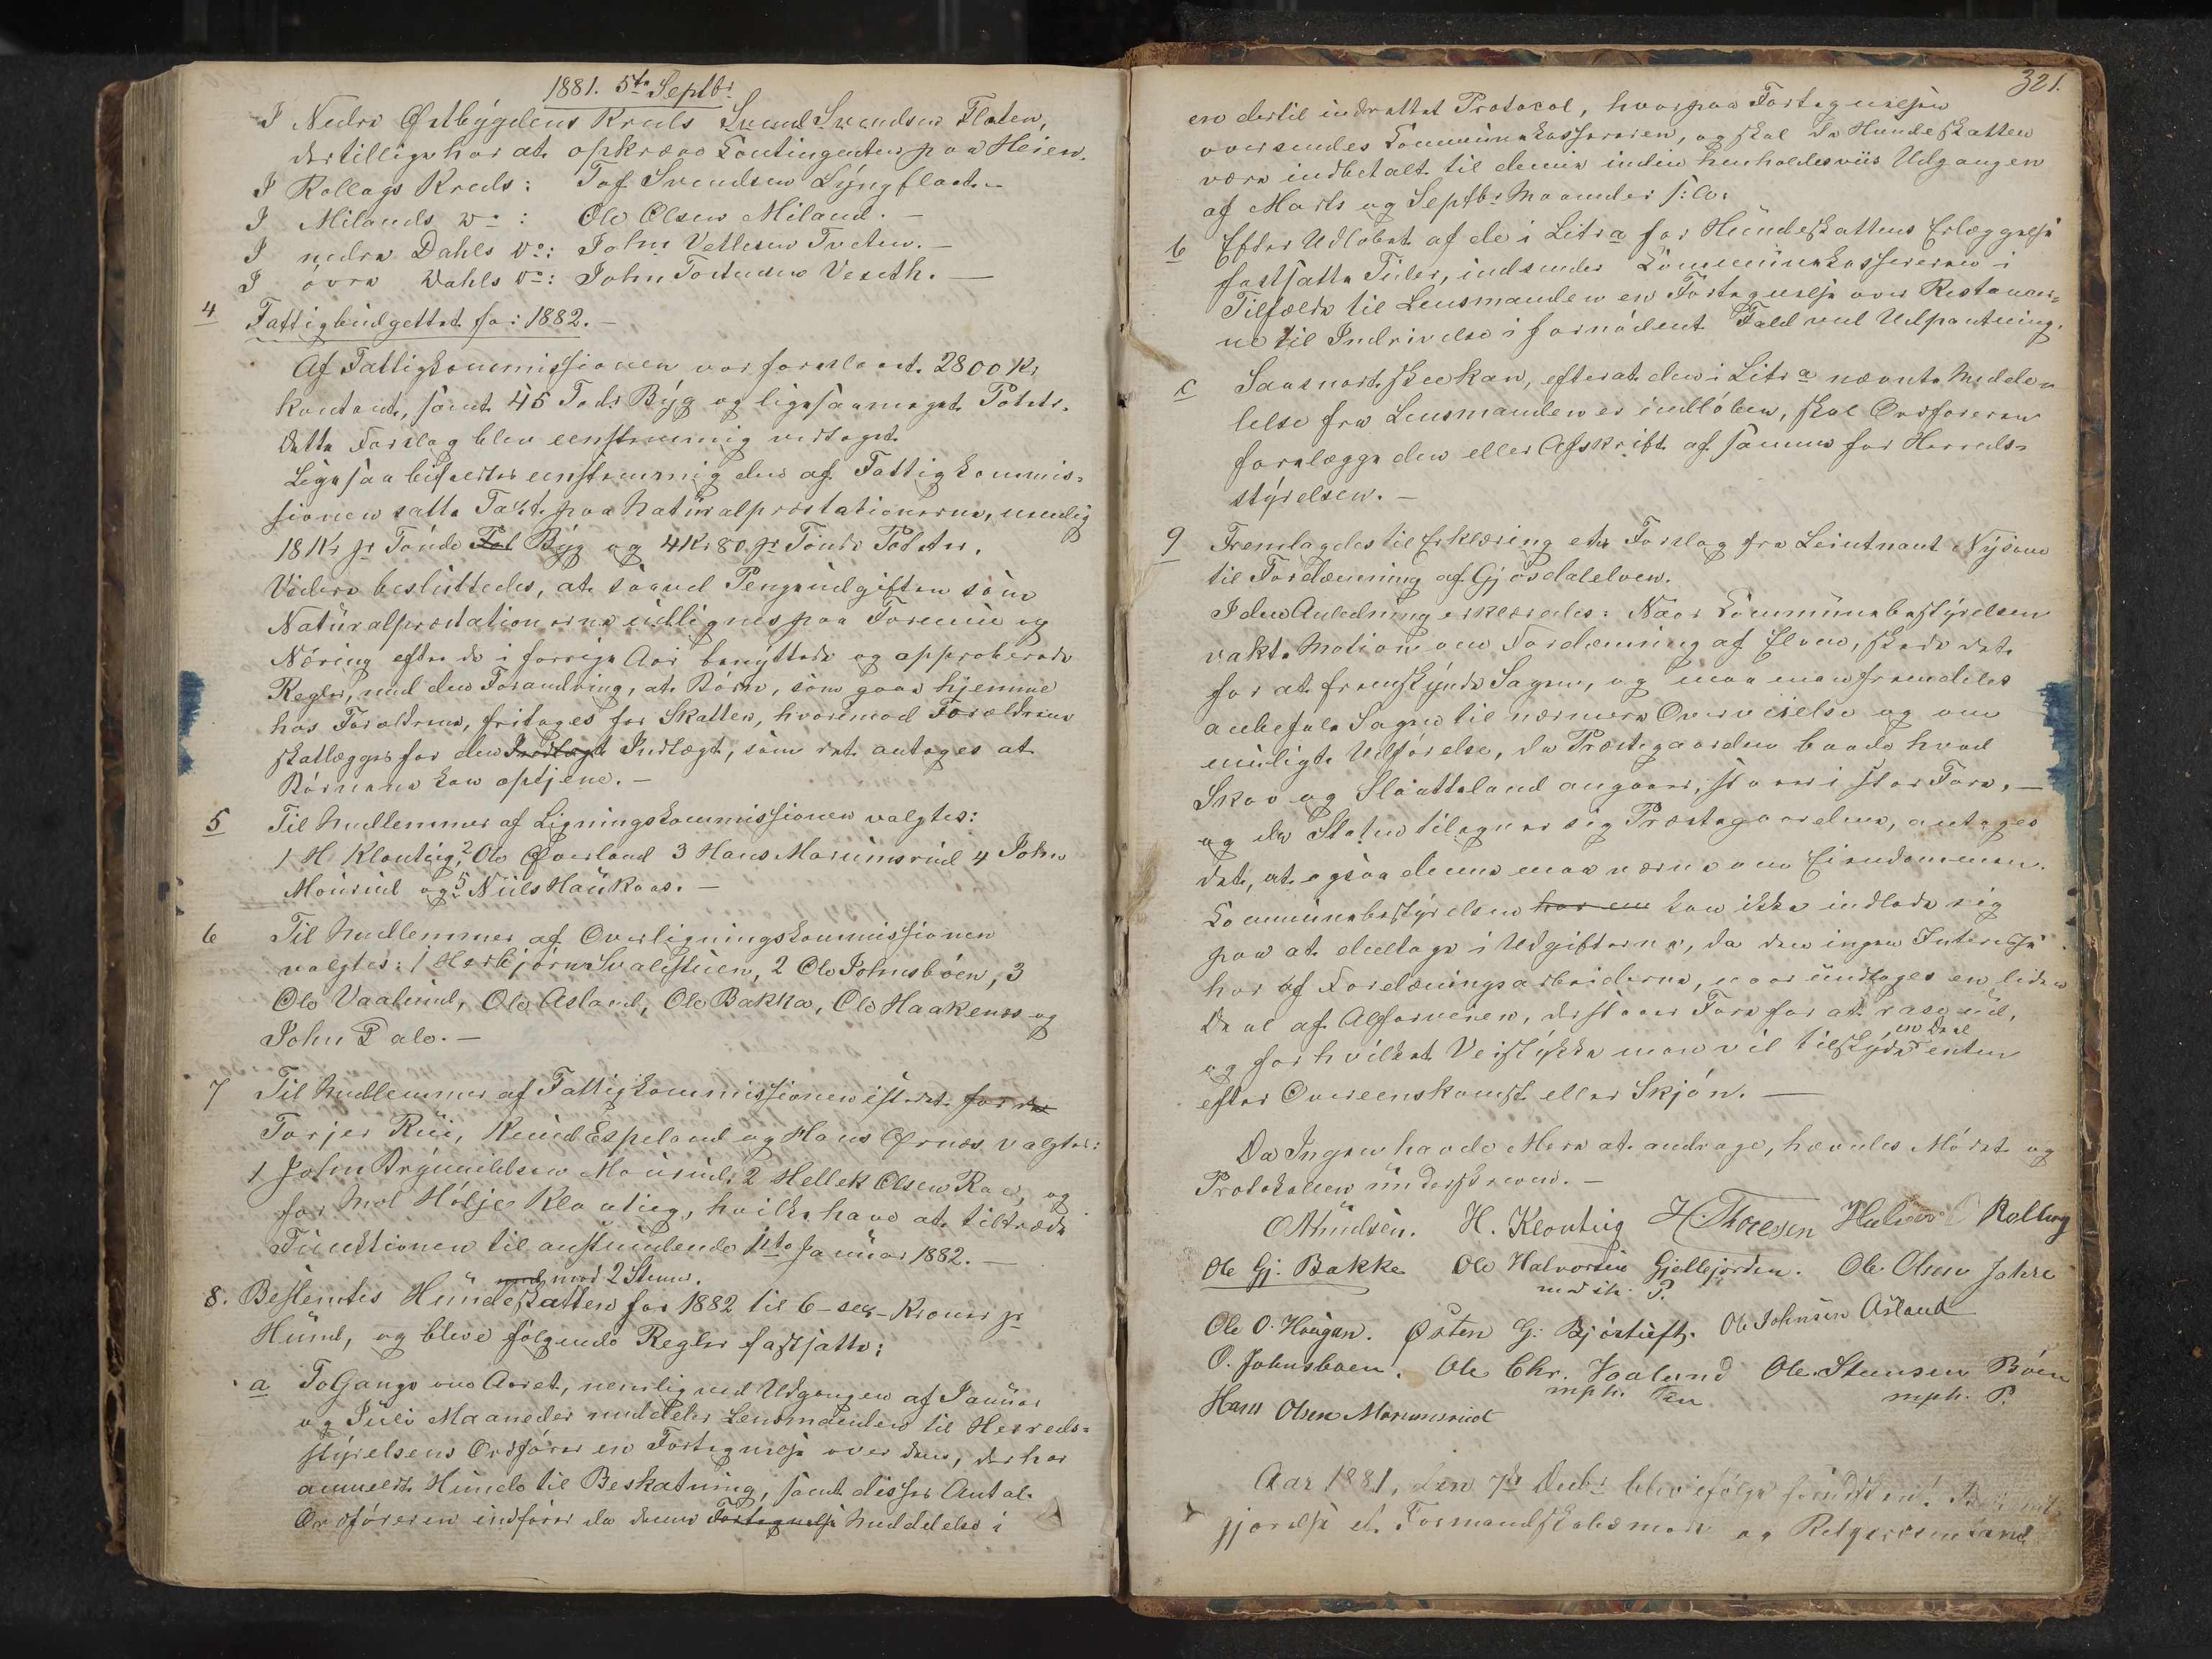 1881. 5te Septbr
I Nedre Østbygdens Kreds Svend Svendsen Flaten,
der tillige har at opkræve Contingenten paa Heien.
I Rollags Kreds: Tof Svendsen Lyngflaat.–
I Milands do: Ole Olsen Miland.–
I nedre Dahls do: John Vetlesen Tveten.–
I övre Dahls do: John Torkensen Veseth.–
4 Fattigbudgettet for 1882.–
Af Fattigkommissionen var foreslaaet 2800 Kr
kontant, samt 45 Tdr Byg og ligesaameget Poteter.
Dette Forslag blev eenstemmig vedtaget.
Ligesaa bifaldtes eenstemmig den af Fattigkommis-
sionen satte Taxt paa Naturalprestationerne, nemlig
18 Kr pr Tönde Byg og 4 Kr 80 pr Tönde Poteter.
Videre besluttedes, at saavel Pengeudgiften som
Naturalprestationerne udlignes paa Formue og
Næring efter de i forrige Aar benyttede og approberede
Regler, med den Forandring, at Börn, som gaar hjemme
hos Forældrene, fritages for Skatten, hvorimod Forældrene
skatlægges for den Indtægt Indtægt, som det antages at
Börnene kan optjene.–
5 Til Medlemmer af Ligningskommissionen valgtes:
1 H. Klonteig, 2 Ole Øverland 3 Hans Marumsrud 4 John
Mourud og 5 Niels Haukaas.–
6 Til Medlemmer af Overligningskommissionen
valgtes: 1 Herbjörn Svalestuen, 2 Ole Johnsböen, 3
Ole Vaalund, Ole Asland, Ole Bakka, Ole Haakenes og
John Dale.–
7 Til Medlemmer af Fattigkommissionen istedet for de
Torjer Rui, Knud Espeland og Hans Ørnæs valgtes:
1 John Brynnildsen Mourud, 2 Hellek Olsen Roe, og
for Mel Hölje Klontieg, hvilke have at tiltræde
Functionen til anstundende 1ste Januar 1882.–
med mod 2 Stemr.
8. Bestemtes Hundeskatten for 1882 til 6 – sex – Kroner pr
Hund, og bleve fölgende Regler fastsatte:
a To Gange om Aaret, nemlig ved Udgangen af Januar
og Juli Maaneder meddeler Lensmanden til Herreds-
styrelsens Ordförer en Fortegnelse over dem, der har
anmeldt Hunde til Beskatning, samt disses Antal.
Ordföreren indförer da denne Fortegnelse Meddelelse i
321.
en dertil indrettet Protocol, hvorpaa Fortegnelsen
oversendes Kommunekassereren, og skal da Hundeskatten
være indbetalt til denne inden henholdsviis Udgangen
af Marts og Septbr Maaneder s: A:
b Efter Udlöbet af de i Litra a for Hundeskattens Erlæggelse
fastsatte Tider, indsender Kommunekassereren i
Tilfælde til Lensmanden en Fortegnelse over Restancer-
ne til Indrivelse i fornödent Fald ved Udpantning.
c Saasnart skee kan, efterat den i Litra a nævnte Medde-
lelse fra Lensmanden er indlöben, skal Ordföreren
forelægge den eller Afskrift af samme for Herreds-
styrelsen.–
9 Fremlagdes til Erklæring et Forslag fra Leiutnant Nysom
til Fordæmning af Gjösdalelven.
I den Anledning erklæredes: Naar Kommunebestyrelsen
vakte Motion om Fordæmning af Elven, skede det
for at fremskynde Sagen, og maa man fremdeles
anbefale Sagen til nærmere Overveielse og om
muligt Udförelse, da Præstegaarden baade hvad
Skov og Slaatteland angaar, staar i stor Fare,–
og da Staten tilegner sig Præstegaardene, antages
det, at ogsaa denne maa værne om Eiendommen.
Kommunebestyrelsen har en kan ikke indlade sig
paa at deeltage i Udgifterne, da den ingen Interesse
har af Fordæmningsarbeiderne, naar undtages en liden
Deel af Alfarveien, der staar Fare for at rase ud,
og for hvilket Veistykke man vil tilskyde en Deel enten
efter Overeenskomst eller Skjön.–
Da Ingen havde Mere at andrage, hævedes Mödet og
Protokollen underskreven.–
O Knudsen. H. Klontieg H. Thoresen Halvor Rollag
Ole Gj: Bakke Ole Halvorsen Gjellejorden. Ole Olsen Jahre
med ih. P.
Ole O. Haugan. Østen G: Bjöstuft. Ole Johnsen Åsland
O. Johnsbøen. Ole Chr. Vaalund Ole Steensen Böen
mph. Pen mph. P.
Hans Olsen Marumsrud
Aar 1881, den 7de Decbr blev ifölge forudskeet
gjørelse et Formandskabsmöde og Repræsentant